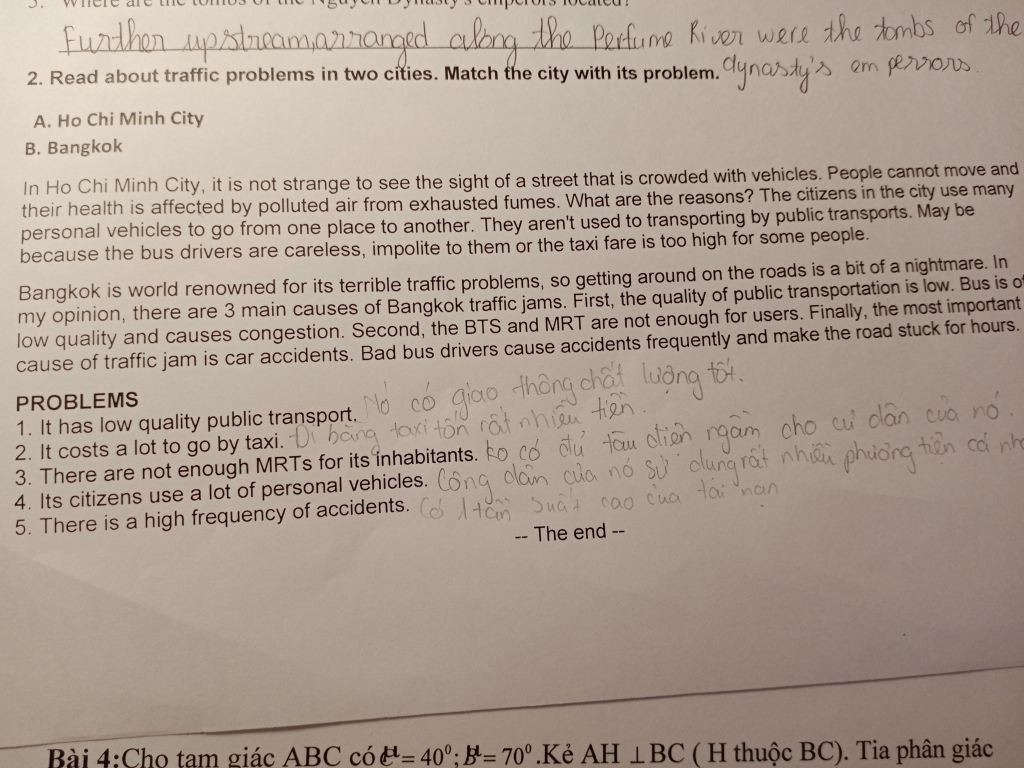 3. Where are the tombs of the Nguyen Dynasty's emperors located?
Further upstream,arranged along the Perfume River were the tombs of the
dynasty's emperrors.
2. Read about traffic problems in two cities. Match the city with its problem.
A. Ho Chi Minh City
B. Bangkok
In Ho Chi Minh City, it is not strange to see the sight of a street that is crowded with vehicles. People cannot move and
their health is affected by polluted air from exhausted fumes. What are the reasons? The citizens in the city use many
personal vehicles to go from one place to another. They aren't used to transporting by public transports. May be
because the bus drivers are careless, impolite to them or the taxi fare is too high for some people.
Bangkok is world renowned for its terrible traffic problems, so getting around on the roads is a bit of a nightmare. In
my opinion, there are 3 main causes of Bangkok traffic jams. First, the quality of public transportation is low. Bus is of
low quality and causes congestion. Second, the BTS and MRT are not enough for users. Finally, the most important
cause of traffic jam is car accidents. Bad bus drivers cause accidents frequently and make the road stuck for hours.
PROBLEMS
1. It has low quality public transport. Nó có giao thông chất lượng tốt.
2. It costs a lot to go by taxi. Đi bằng taxi tốn rất nhiều tiền.
3. There are not enough MRTs for its inhabitants. ko có đủ tàu điện ngầm cho cư dân của nó.
4. Its citizens use a lot of personal vehicles. Công dân của nó sử dụng rất nhiều phương tiện cá nh
5. There is a high frequency of accidents. Có 1 tần suất cao của tai nạn
-- The end --
Bài 4:Cho tam giác ABC có = 40⁰; = 70⁰ .Kẻ AH ⊥ BC ( H thuộc BC). Tia phân giác